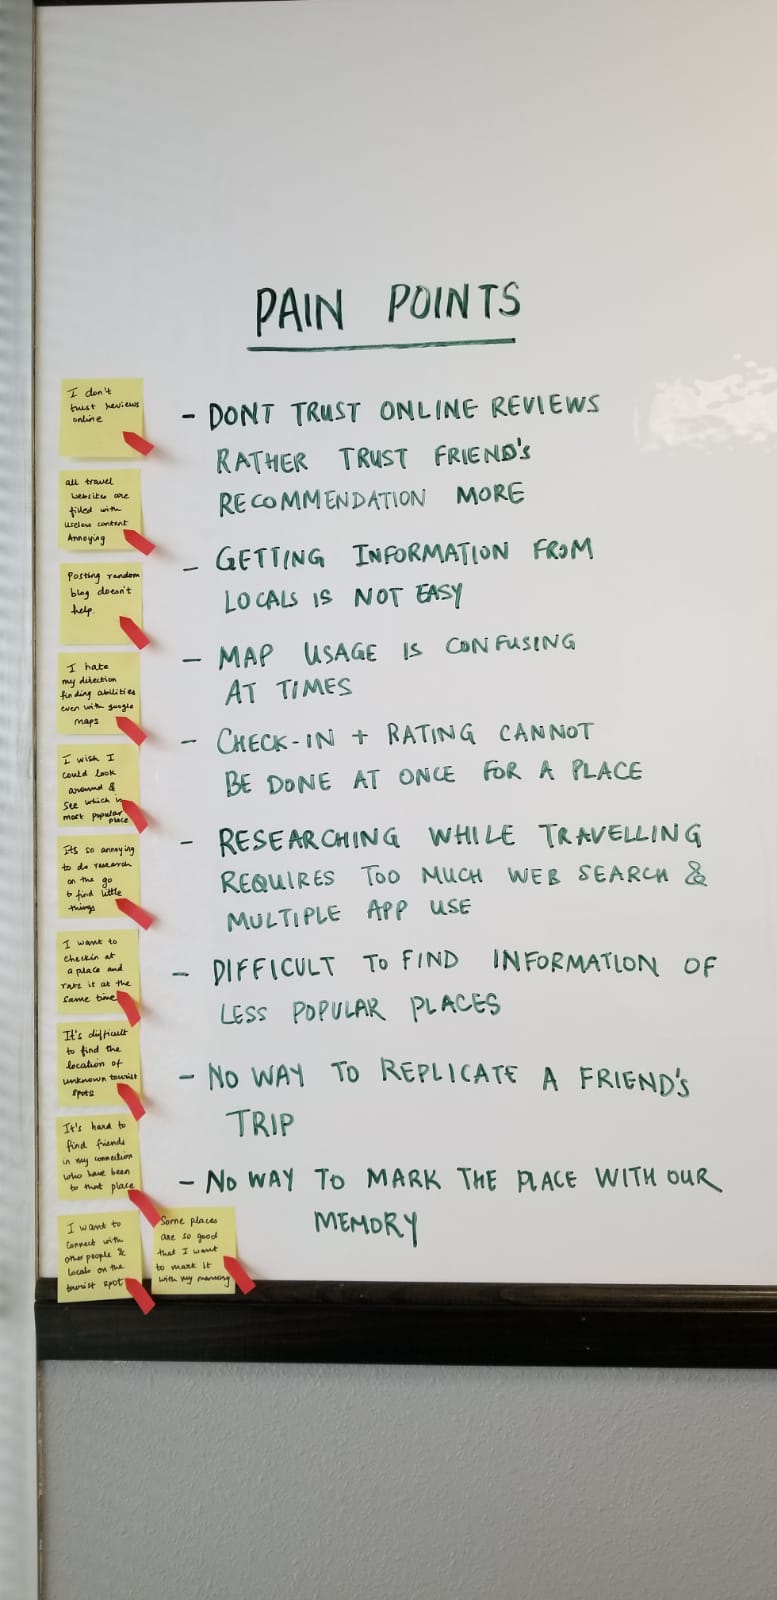 PAIN POINTS
I don't
trust reviews
online
all travel
websites are
filled with
useless content
Annoying
Posting random
blog doesn't
help.
I hate
my direction
finding abilities
even with google
maps
I wish I
could look
around &
see which is
most popular
place
Its so annoying
to do research
on the go
to find little
things
I want to
checkin at
a place and
rate it at the
same time
It's difficult
to find the
location of
unknown tourist
spots
It's hard to
find friends
in my connection
who have been
to that place
I want to
connect with
other people &
locals on the
tourist spot
Some places
are so good
that I want
to mark it
with my memory
- DONT TRUST ONLINE REVIEWS
RATHER TRUST FRIEND'S
RECOMMENDATION MORE
- GETTING INFORMATION FROM
LOCALS IS NOT EASY
- MAP USAGE IS CONFUSING
AT TIMES
- CHECK-IN + RATING CANNOT
BE DONE AT ONCE FOR A PLACE
- RESEARCHING WHILE TRAVELLING
REQUIRES TOO MUCH WEB SEARCH &
MULTIPLE APP USE
- DIFFICULT TO FIND INFORMATION OF
LESS POPULAR PLACES
- NO WAY TO REPLICATE A FRIEND'S
TRIP
- NO WAY TO MARK THE PLACE WITH OUR
MEMORY